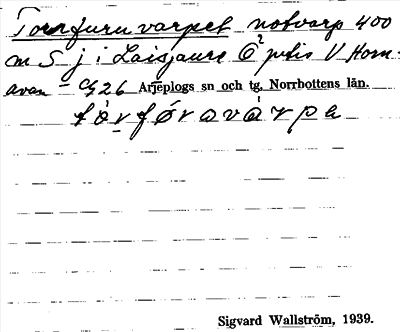 Tornfuru varpet notvarp 400
m S j i Laisjaure Ö² Hom-
avan – Cg 26 Arjeplogs sn och tg, Norrbottens län.
tòrføravàrpa
Sigvard Wallström, 1939.